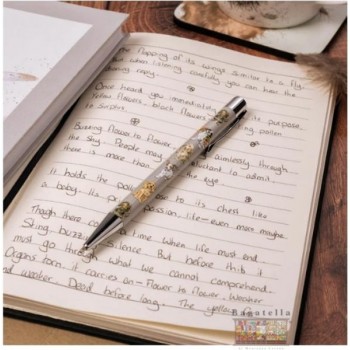 The flapping of its wings similar to a fly
But when listening carefully you can hear the
Once heard you immediately its purpose.
Yellow flowers, black flowers pollen
to survive.
Buzzing flower to flower, aimlessly through
the sky. People may to admit
there is more than the eye
It holds the to its chest like
a baby. Its passion, life - even man maybe.
Though there a time when life must end
Sting, buzz, silence. But before this it
must go through what we cannot comprehend.
Organs torn, it carries on - flower to flower, weather
and weather. Dead before long. The yellow
Bagatella